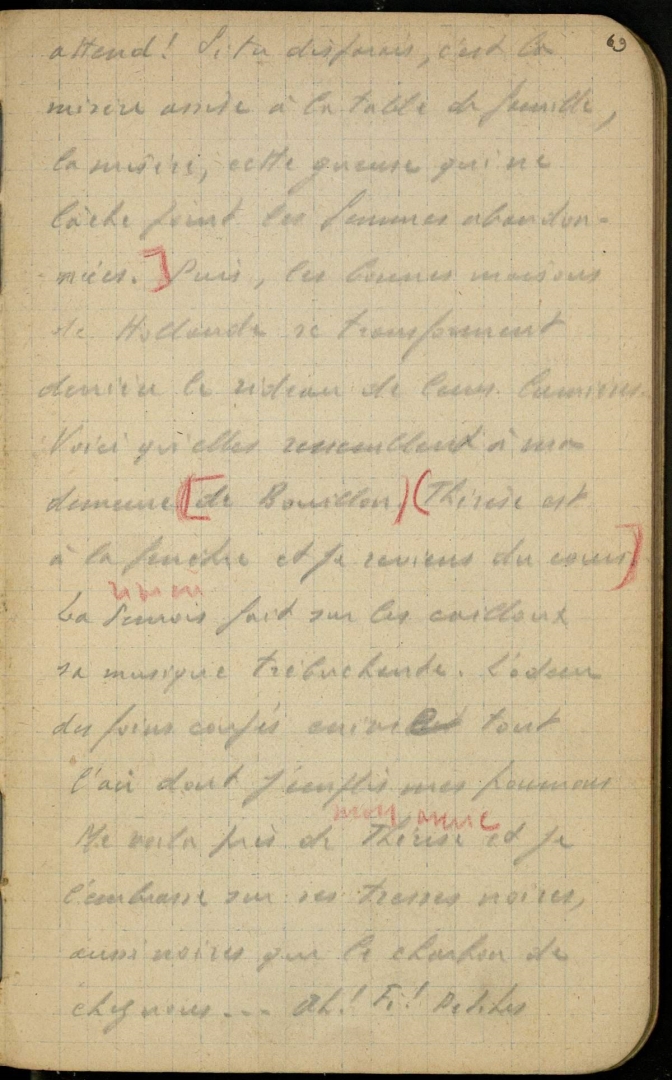 69
attend! Si tu disparais, c'est la
misère assise à la table de famille,
la misère, cette gueuse qui ne
lâche point les femmes abandon-
nées.] Puis, les bonnes maisons
de Hollande se transforment
derrière le rideau de leurs lumières.
Voici qu'elles ressemblent à ma
demeure [de Bouillon) (Thérèse est
à la fenêtre et je reviens du cours]
La Semois fait sur les cailloux
sa musique trébuchante. L'odeur
des foins coupés enivre tout
l'air dont j'emplis mes poumons
mon amie
Me voilà près de Thérèse et je
l'embrasse sur ses tresses noires,
aussi noires que le charbon de
chez nous... Ah! Fi! Petites